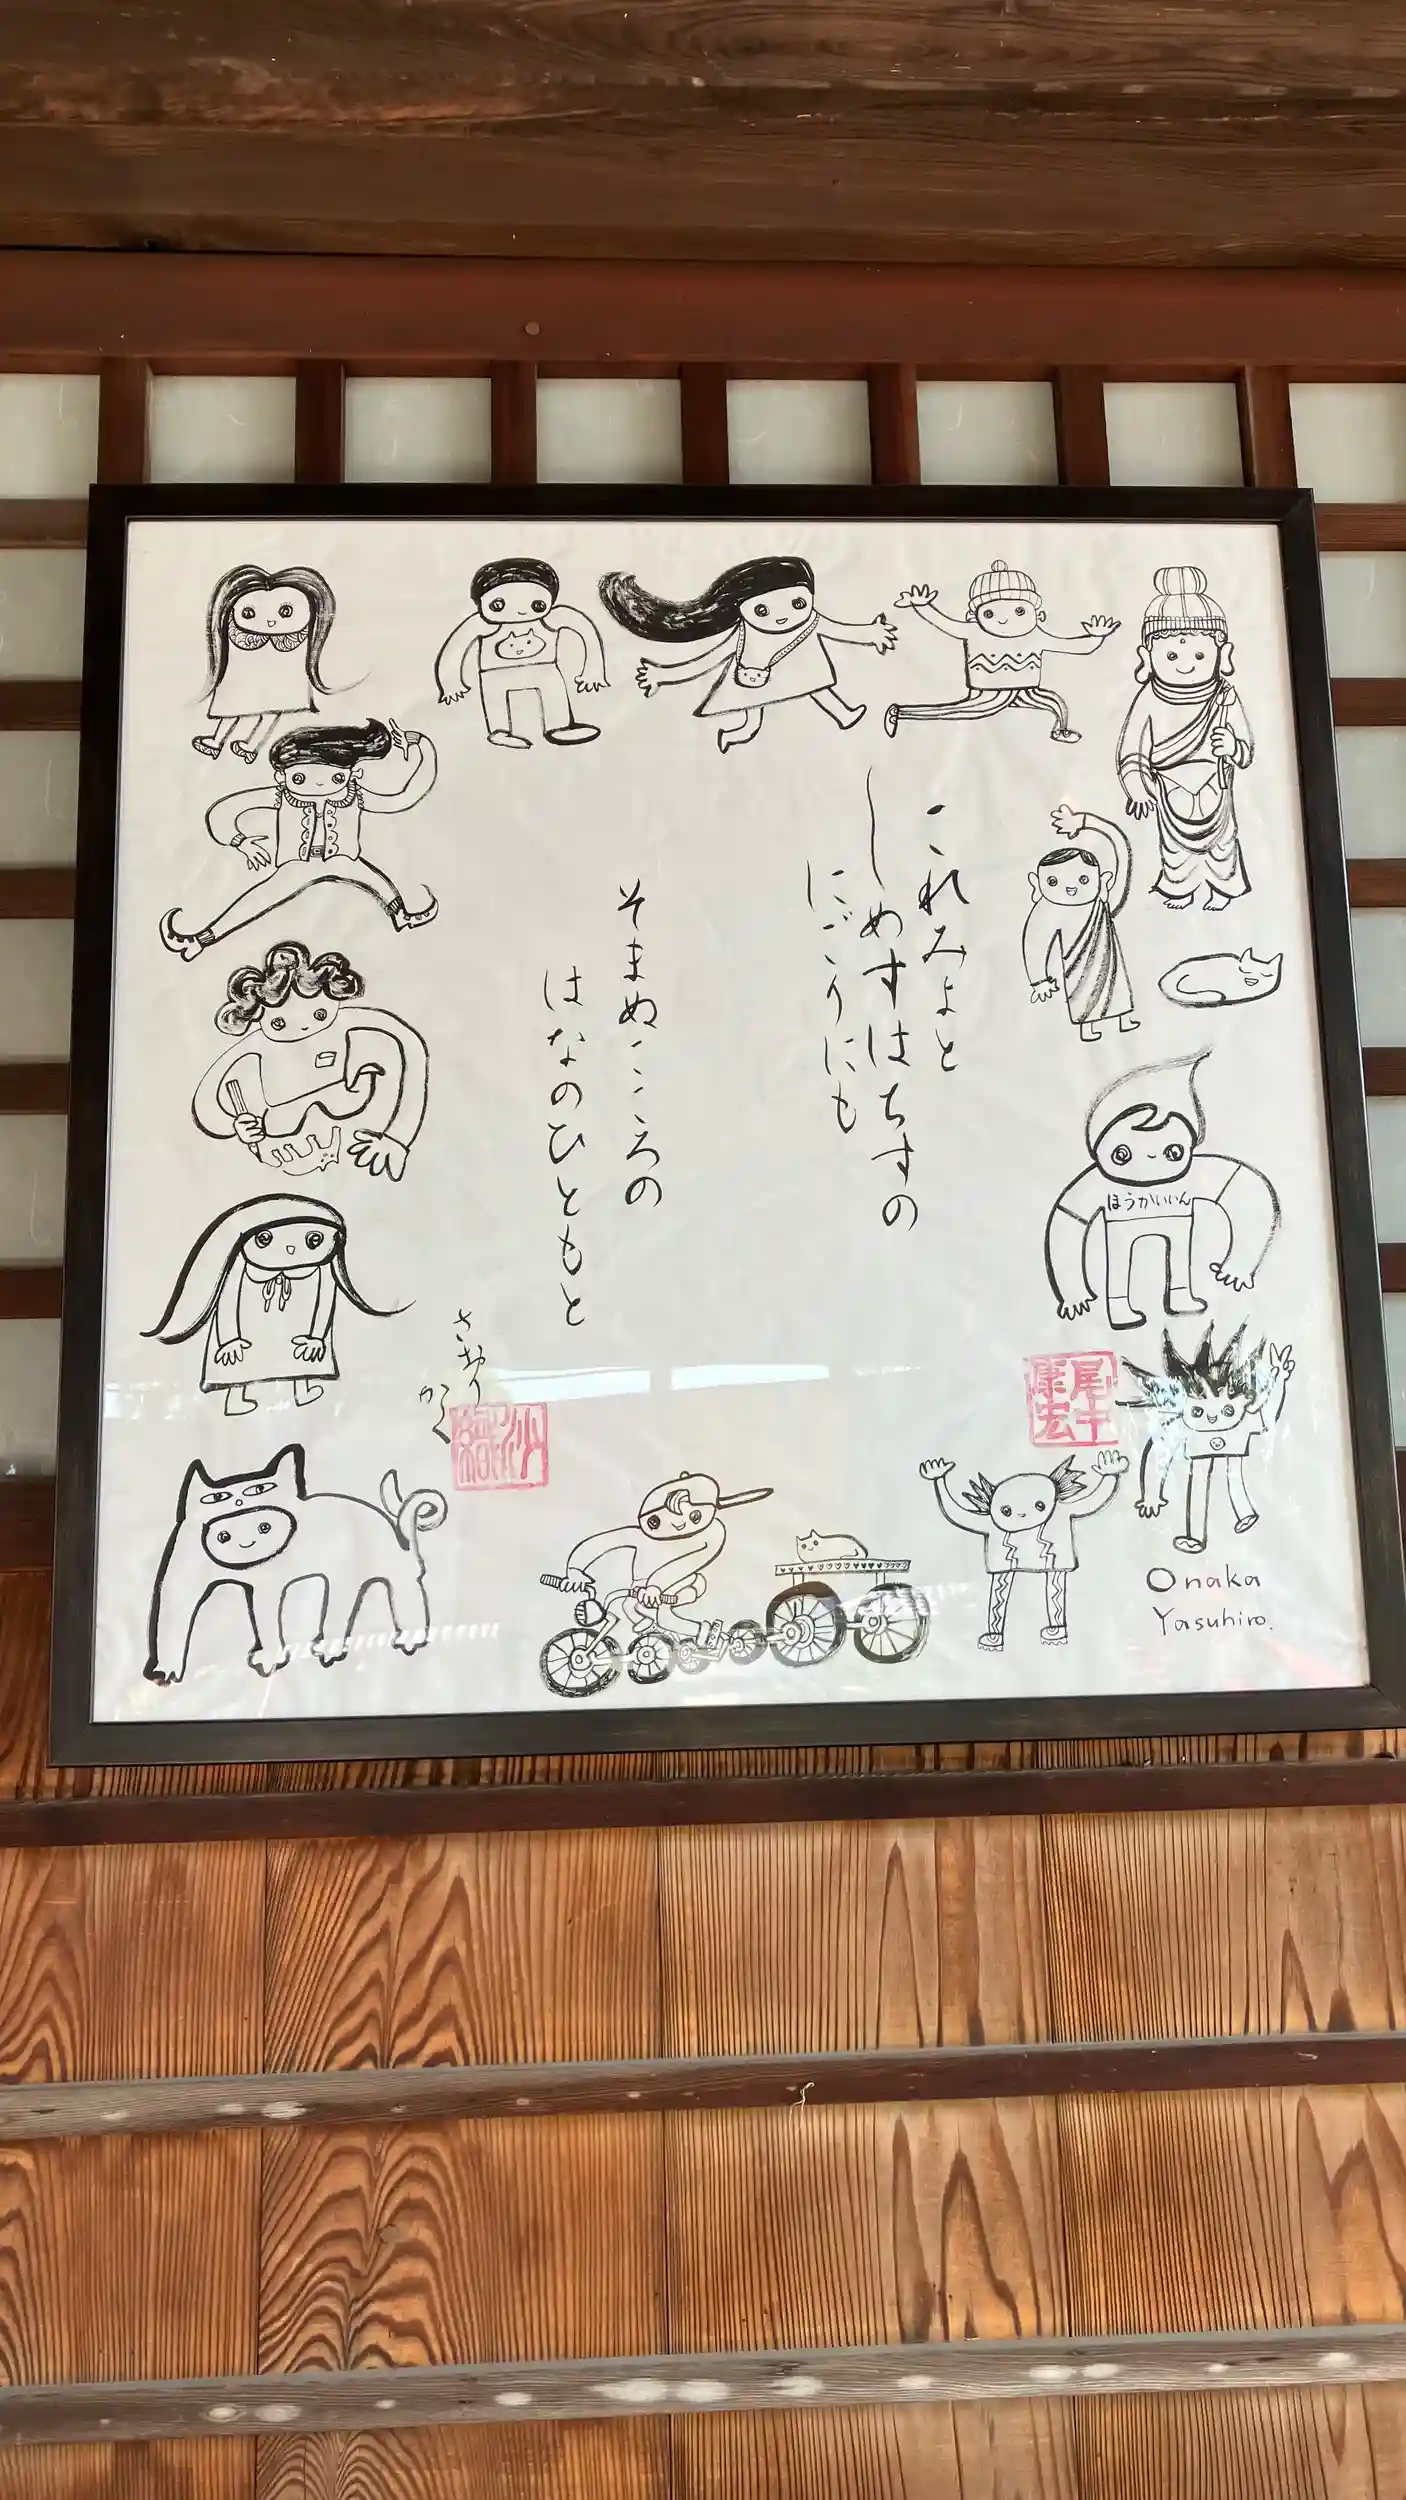 これみよと
しめすはちすの
にごりにも
そまぬこころの
はなのひともと
さおり
かく
ほうかいいん
尾中
康宏
Onaka
Yasuhiro.